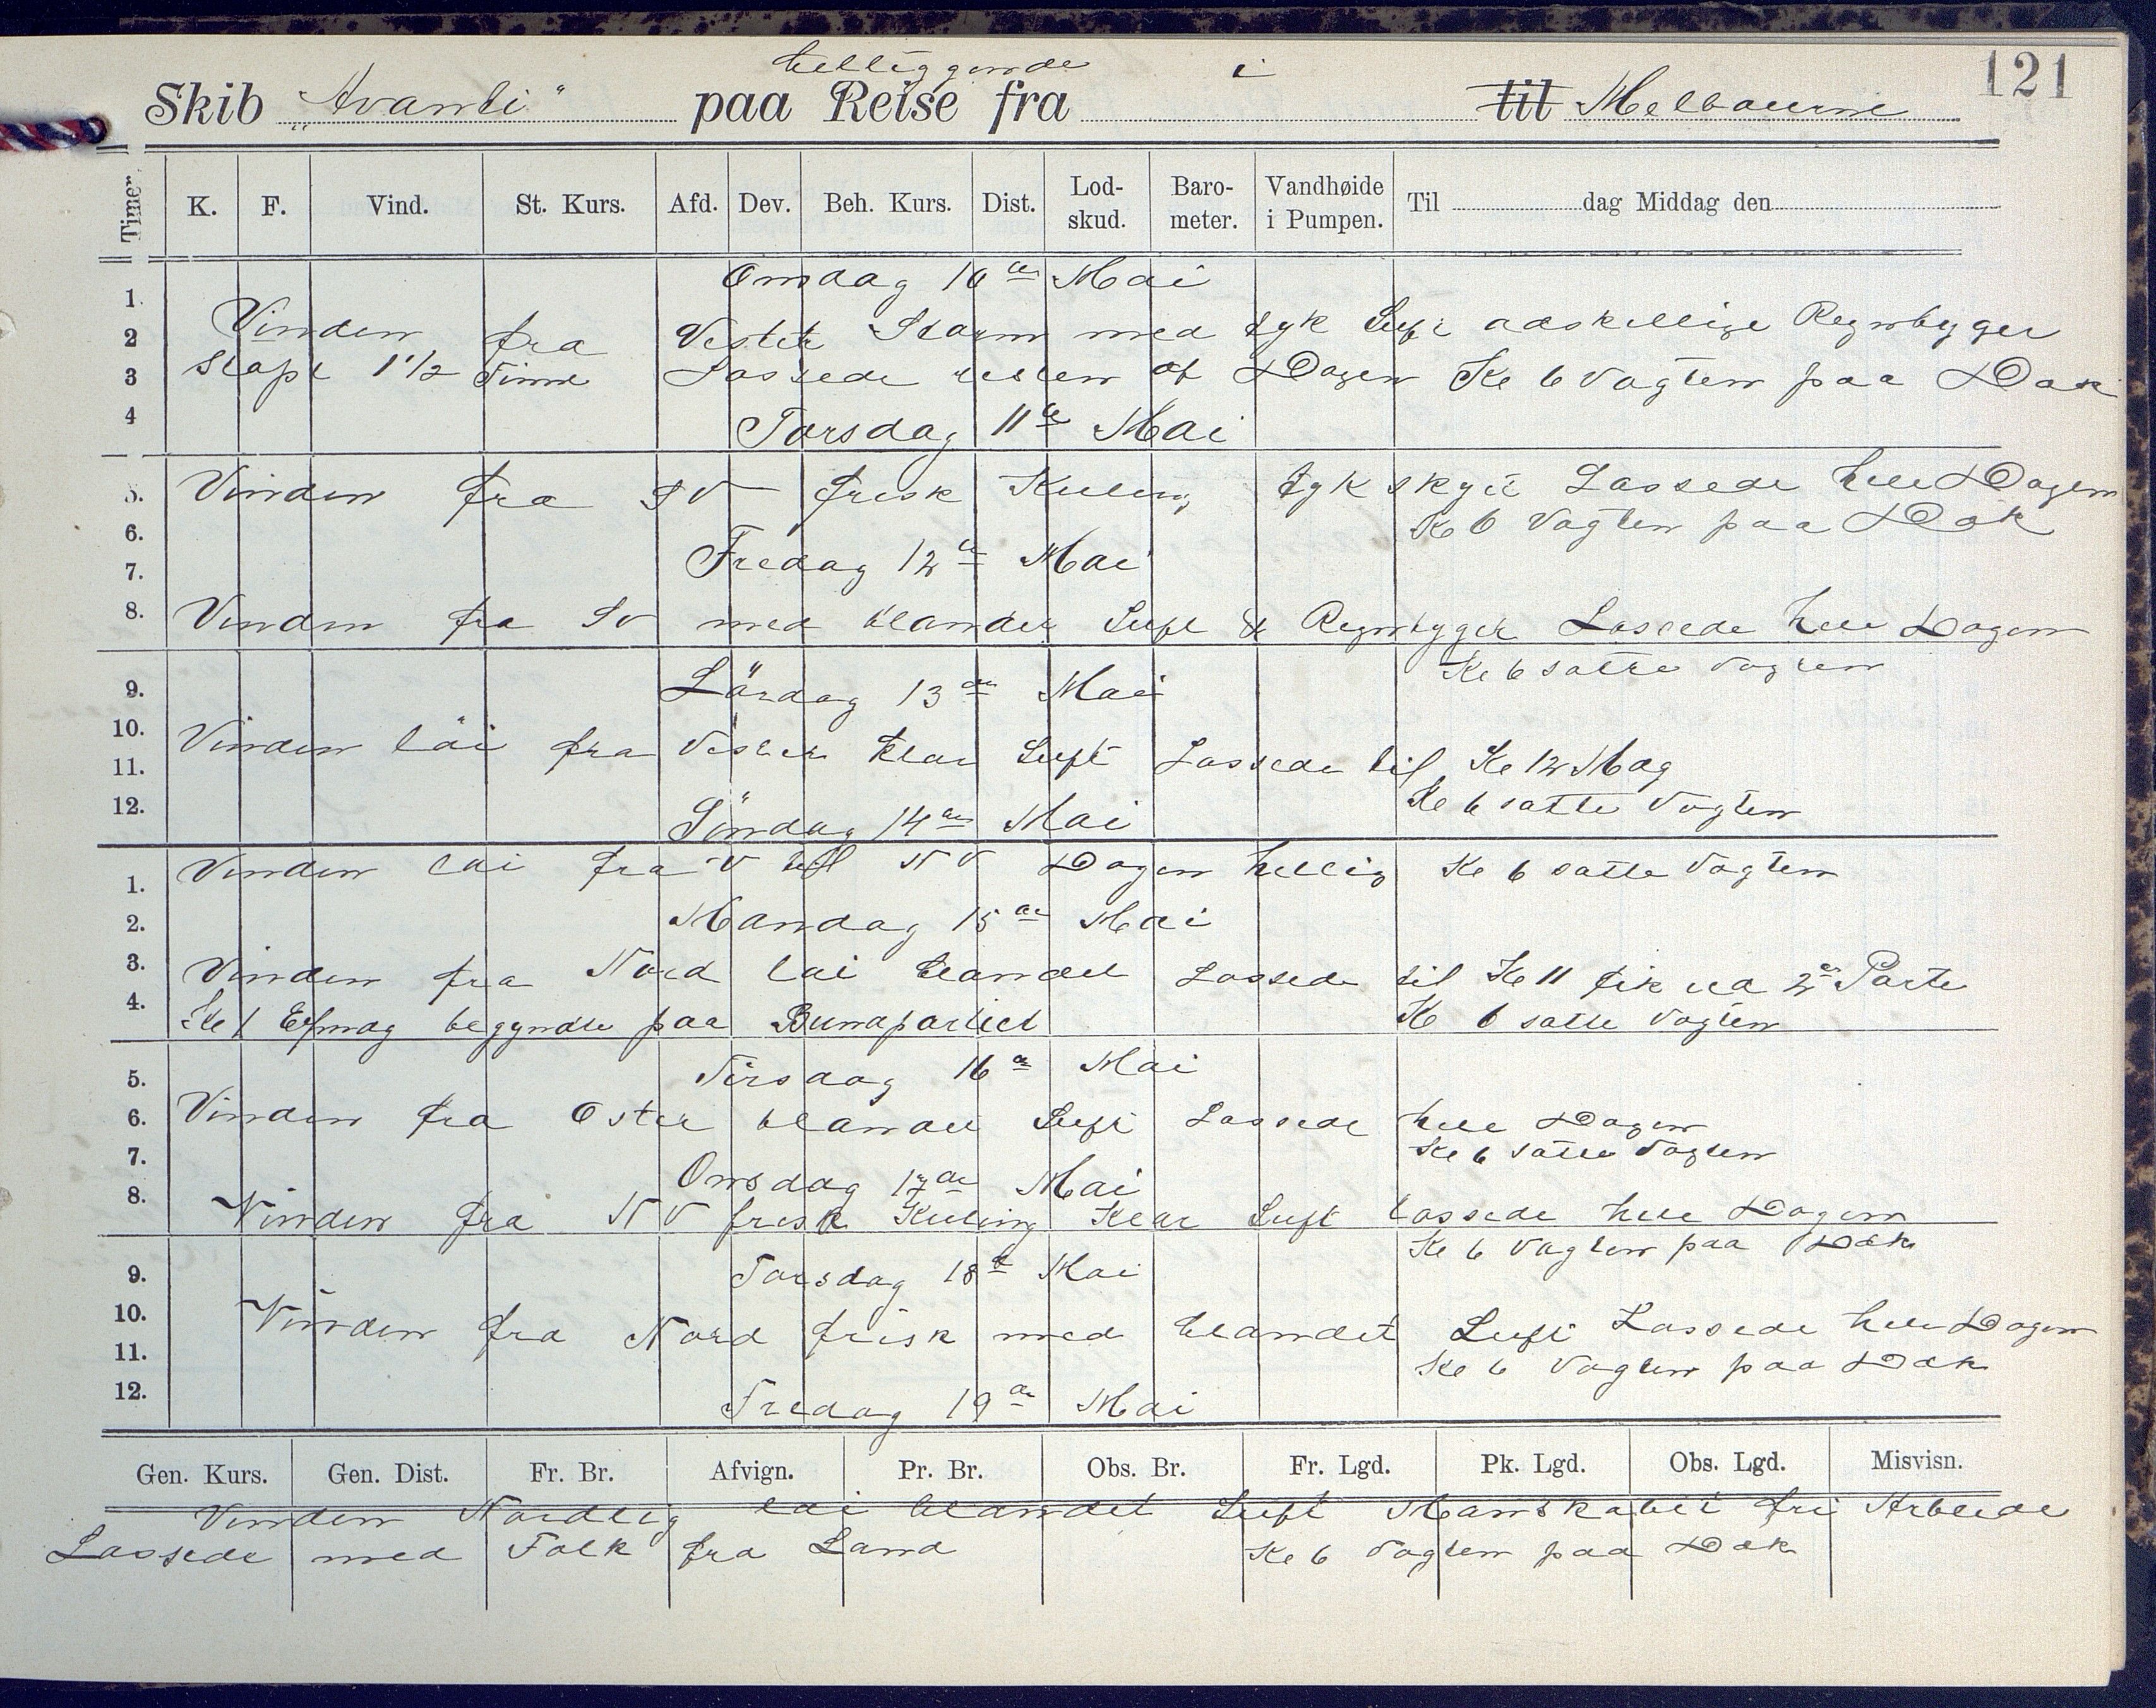 121
tilliggende i
Skib "Avanti" paa Reise fra til Melbourne
Timer. K. F. Vind. St. Kurs. Afd. Dev. Beh. Kurs. Dist. Lod-skud. Baro-meter. Vandhøide i Pumpen. Til dag Middag den
Onsdag 10de Mai
1.
2 Vinden fra Vester Storm med tyk Luft adskellige Regnbyger
3 Stopt 1 1/2 Time Lossede resten af Dagen Kl 6 Vagten paa Dæk
4 Torsdag 11te Mai
5. Vinden fra SV frisk Kuling tyk skyet Lossede hele Dagen
6. Kl 6 Vagten paa Dæk
7. Fredag 12te Mai
8. Vinden fra SV med blandet Luft & Regnbyger Lossede hele Dagen
Kl 6 satte Vagten
9. Lördag 13de Mai
10. Vinden löi fra Vester klar Luft Lossede til Kl 12 Mdg
11.
12. Kl 6 satte Vagten
Söndag 14de Mai
1. Vinden löi fra V til NV Dagen hellig Kl 6 satte Vagten
2. Mandag 15de Mai
3. Vinden fra Nord löi blandet Lossede til Kl 11 fik ud 2det Parti
4. Kl 1 Efmdg begyndte paa Bundpartiet Kl 6 satte Vagten
5. Tirsdag 16de Mai
6. Vinden fra Oster blandet Luft Lossede hele Dagen
7. Kl 6 satte Vagten
Onsdag 17de Mai
8. Vinden fra NV frisk Kuling Klar Luft lossede hele Dagen
Kl 6 Vagten paa Dæk
9. Torsdag 18de Mai
10. Vinden fra Nord frisk med blandet Luft Lossede hele Dagen
11. Kl 6 Vagten paa Dæk
12. Fredag 19de Mai
Gen. Kurs. Gen. Dist. Fr. Br. Afvign. Pr. Br. Obs. Br. Fr. Lgd. Pk. Lgd. Obs. Lgd. Misvisn.
Vinden Nordlig löi blandet Luft Manskabet fri Arbeide
Lossede med Folk fra Land Kl 6 Vagten paa Dæk